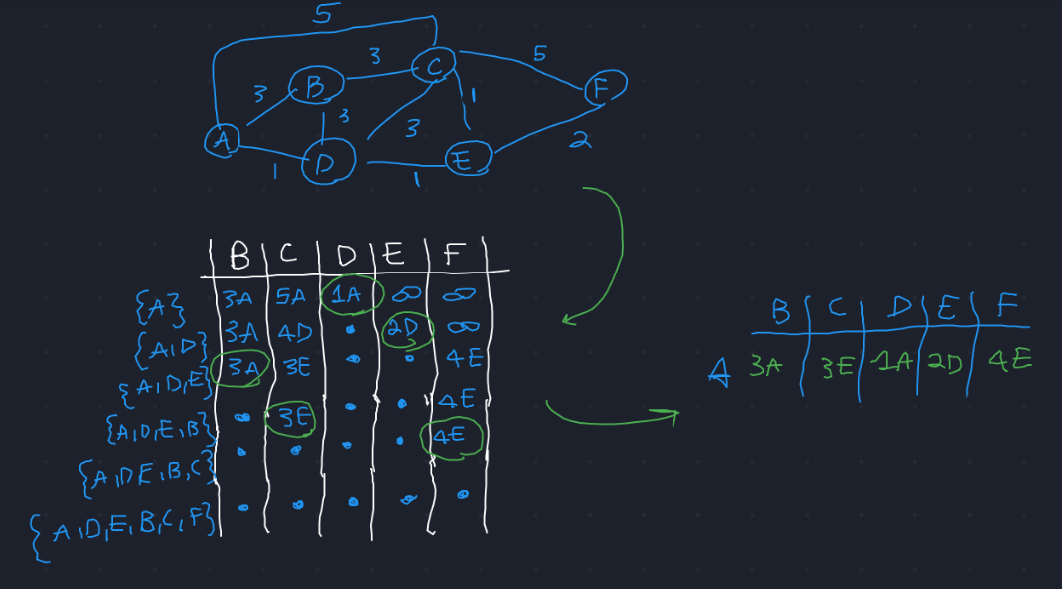 5
3 C 5
3 B 1 F
A 3 3 2
1 D 1 E
B C D E F
{A} 3A 5A 1A ∞ ∞
{A,D} 3A 4D • 2D ∞
{A,D,E} 3A 3E • • 4E
{A,D,E,B} • 3E • • 4E
{A,D,E,B,C} • • • • 4E
{A,D,E,B,C,F} • • • • •
B C D E F
A 3A 3E 1A 2D 4E